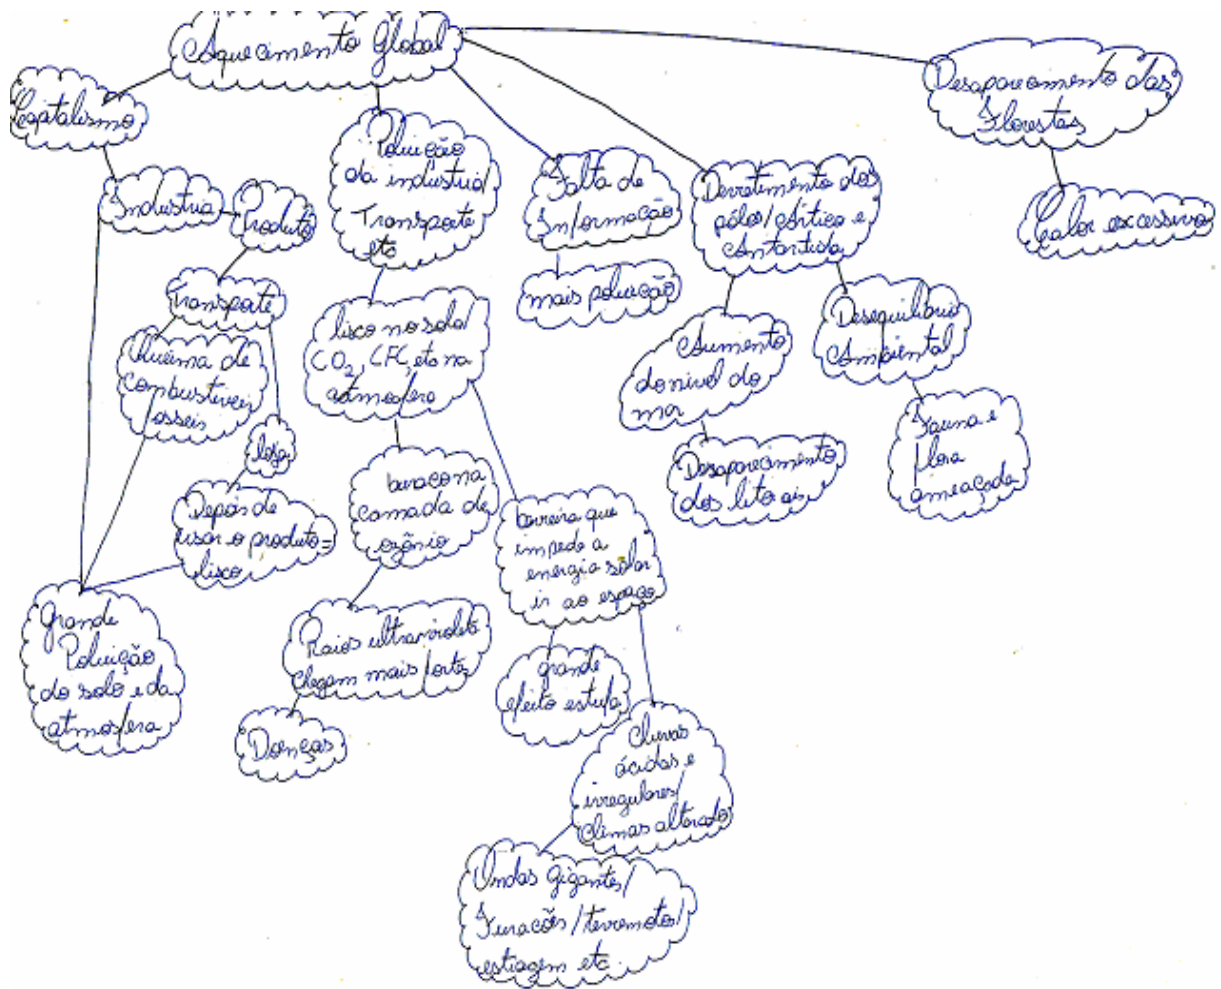 Aquecimento Global
Capitalismo
Industria
Produto
Transporte
Queima de
combustíveis
fósseis
loja
Depois de
usar o produto =
lixo
grande
Poluição
do solo e da
atmosfera
Poluição
da industria/
Transporte
etc
lixo no solo/
CO2, CFC, etc na
atmosfera
buraco na
camada de
ozônio
Raios ultravioleta
chegam mais forte
Doenças
barreira que
impede a
energia solar
ir ao espaço
grande
efeito estufa
Chuvas
ácidas e
irregulares/
climas alterado
Ondas gigantes/
Furacões/terremotos/
estiagem etc.
Falta de
Informação
mais poluição
Derretimento dos
pólos/Ártico e
Antartida
Aumento
do nivel do
mar
Desaparecimento
dos litorais
Desequilíbrio
Ambiental
Fauna e
flora
ameaçada
Desaparecimento das
Florestas
Calor excessivo